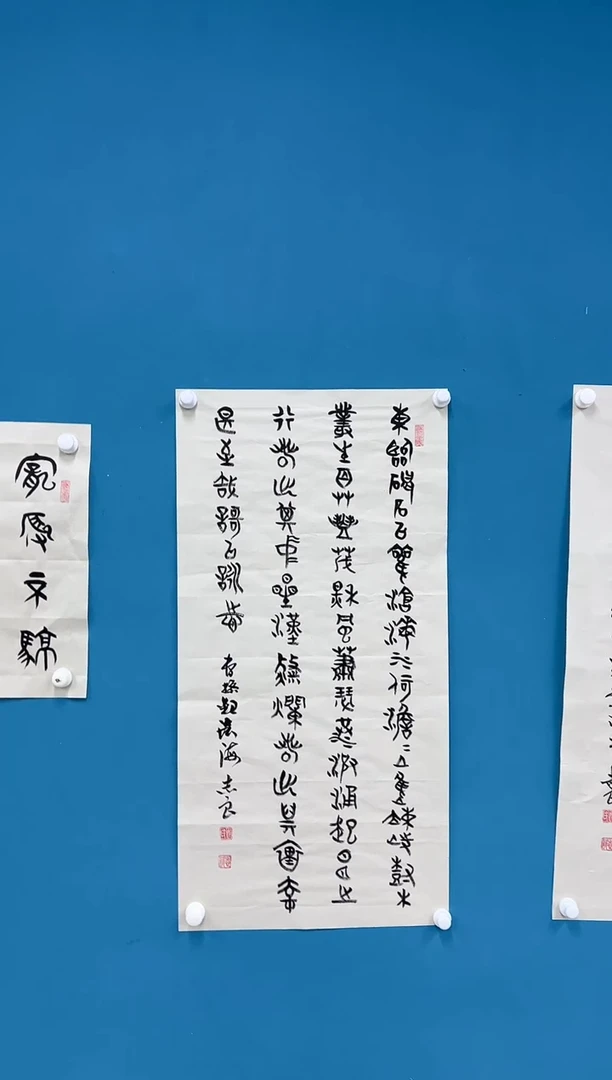 東臨碣石以觀滄海水何澹〻山島竦峙樹木
叢生百草豐茂秋風蕭瑟洪波涌起日月之
行若出其中星漢燦爛若出其裏幸
甚至哉歌以詠志 曹操觀滄海 志良
寵辱不驚